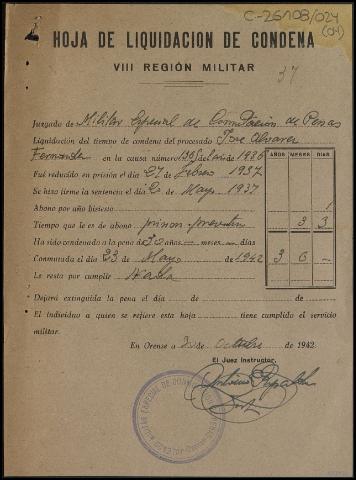 C-26108/024
(04)
HOJA DE LIQUIDACION DE CONDENA
VIII REGIÓN MILITAR
37
Juzgado de Militar Especial de Conmutación de Penas
Liquidación del tiempo de condena del procesado Jose Alvarez
Fernandez en la causa número del año de 1936
Fué reducido en prisión el día 27 de Febrero 1937
Se hizo firme la sentencia el día 20 de Mayo 1937
AÑOS MESES DIAS
Abono por año bisiesto 1
Tiempo que le es de abono prision preventiva 3 3
Ha sido condenado a la pena de 30 años — meses — días
Conmutada el día 23 de Mayo de 1942 3 6 —
Le resta por cumplir Nada
Dejará extinguida la pena el día de de
El individuo a quien se refiere esta hoja tiene cumplido el servicio
militar.
En Orense a de octubre de 1942.
El Juez Instructor,
JUZGADO MILITAR ESPECIAL DE